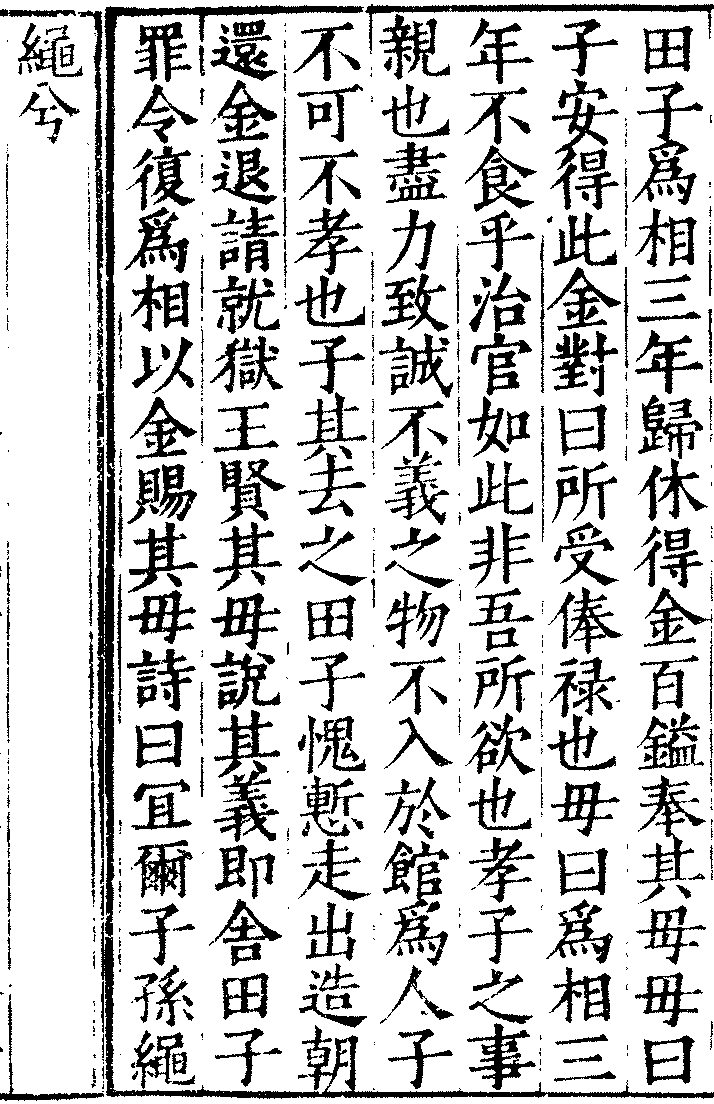 田子爲相三年歸休得金百鎰奉其毋毋曰
子安得此金對曰所受俸祿也毋曰爲相三
年不食乎治官如此非吾所欲也孝子之事
親也盡力致誠不義之物不入於館爲人子
不可不孝也子其去之田子愧慙走出造朝
還金退請就獄王賢其毋說其義即舎田子
罪令復爲相以金賜其毋詩曰冝爾子孫繩
繩兮